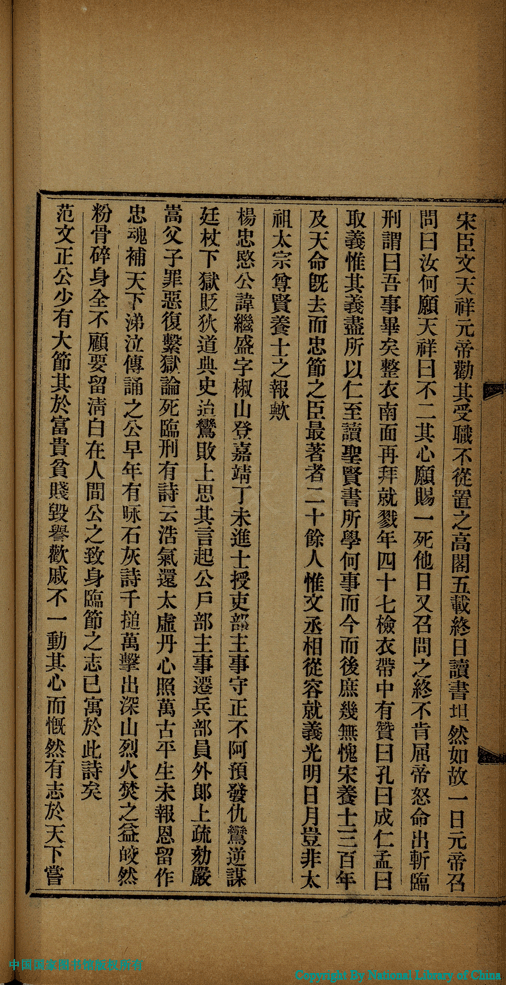 宋臣文天祥元帝勸其受職不從置之高閣五載終日讀書坦然如故一日元帝召
問曰汝何願天祥曰不二其心願賜一死他日又召問之終不肯屈帝怒命出斬臨
刑謂曰吾事畢矣整衣南面再拜就戮年四十七檢衣帶中有贊曰孔曰成仁孟曰
取義惟其義盡所以仁至讀聖賢書所學何事而今而後庶幾無愧宋養士三百年
及天命旣去而忠節之臣最著者二十餘人惟文丞相從容就義光明日月豈非太
祖太宗尊賢養士之報歟
楊忠愍公諱繼盛字椒山登嘉靖丁未進士授吏部主事守正不阿預發仇鸞逆謀
廷杖下獄貶狄道典史迨鸞敗上思其言起公戶部主事遷兵部員外郎上疏劾嚴
嵩父子罪惡復繫獄論死臨刑有詩云浩氣還太虛丹心照萬古平生未報恩留作
忠魂補天下涕泣傳誦之公早年有咏石灰詩千搥萬擊出深山烈火焚之益皎然
粉骨碎身全不顧要留淸白在人間公之致身臨節之志已寓於此詩矣
范文正公少有大節其於富貴貧賤毀譽歡戚不一動其心而慨然有志於天下嘗
中国国家图书馆版权所有
Copyright By National Library of China